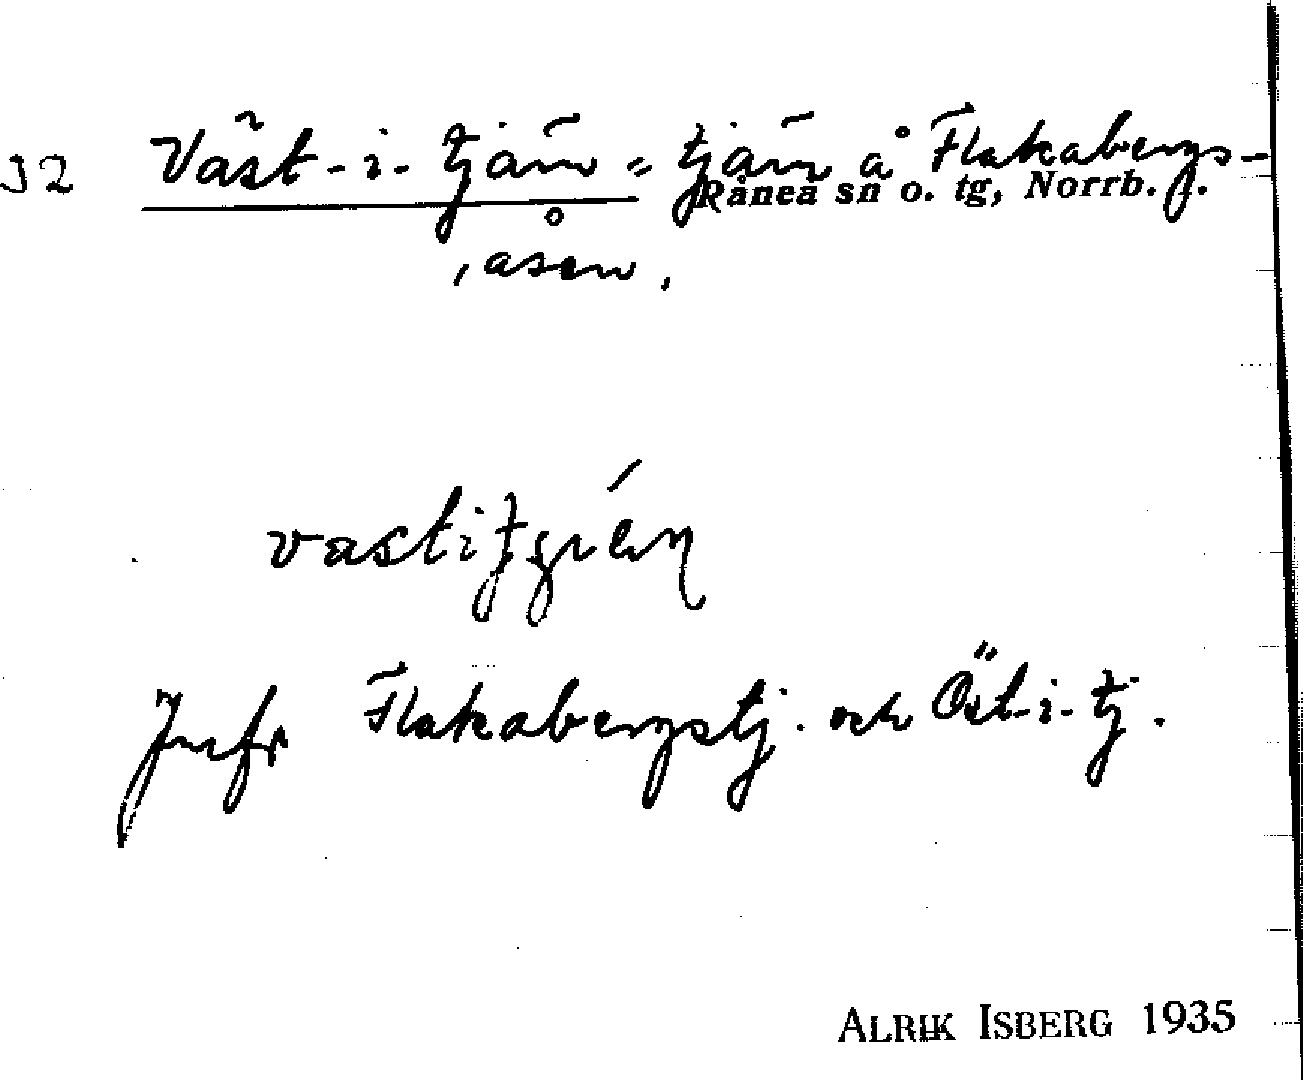 32 Väst-i-tjärn = tjärn å Flakabergs-
Råneå sn o. tg, Norrb. l.
åsen.
Jmfr Flakabergstj. och Öst-i-tj.
ALRIK ISBERG 1935